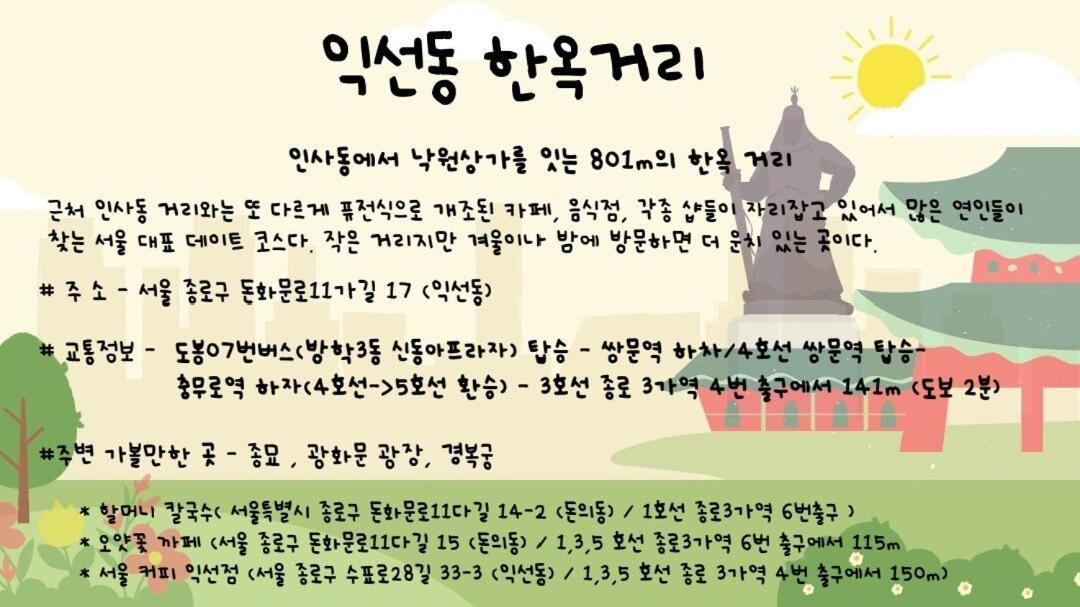 익선동 한옥거리
인사동에서 낙원상가를 잇는 801m의 한옥 거리
근처 인사동 거리와는 또 다르게 퓨전식으로 개조된 카페, 음식점, 각종 샵들이 자리잡고 있어서 많은 연인들이
찾는 서울 대표 데이트 코스다. 작은 거리지만 겨울이나 밤에 방문하면 더 운치 있는 곳이다.
# 주 소 - 서울 종로구 돈화문로11가길 17 (익선동)
# 교통정보 - 도봉07번버스(방학3동 신동아프라자) 탑승 - 쌍문역 하차/4호선 쌍문역 탑승-
충무로역 하자(4호선->5호선 환승) - 3호선 종로 3가역 4번 출구에서 141m (도보 2분)
#주변 가볼만한 곳 - 종묘 , 광화문 광장, 경복궁
* 할머니 칼국수( 서울특별시 종로구 돈화문로11다길 14-2 (돈의동) / 1호선 종로3가역 6번출구 )
* 오얏꽃 까페 (서울 종로구 돈화문로11다길 15 (돈의동) / 1,3,5 호선 종로3가역 6번 출구에서 115m
* 서울 커피 익선점 (서울 종로구 수표로28길 33-3 (익선동) / 1,3,5 호선 종로 3가역 4번 출구에서 150m)